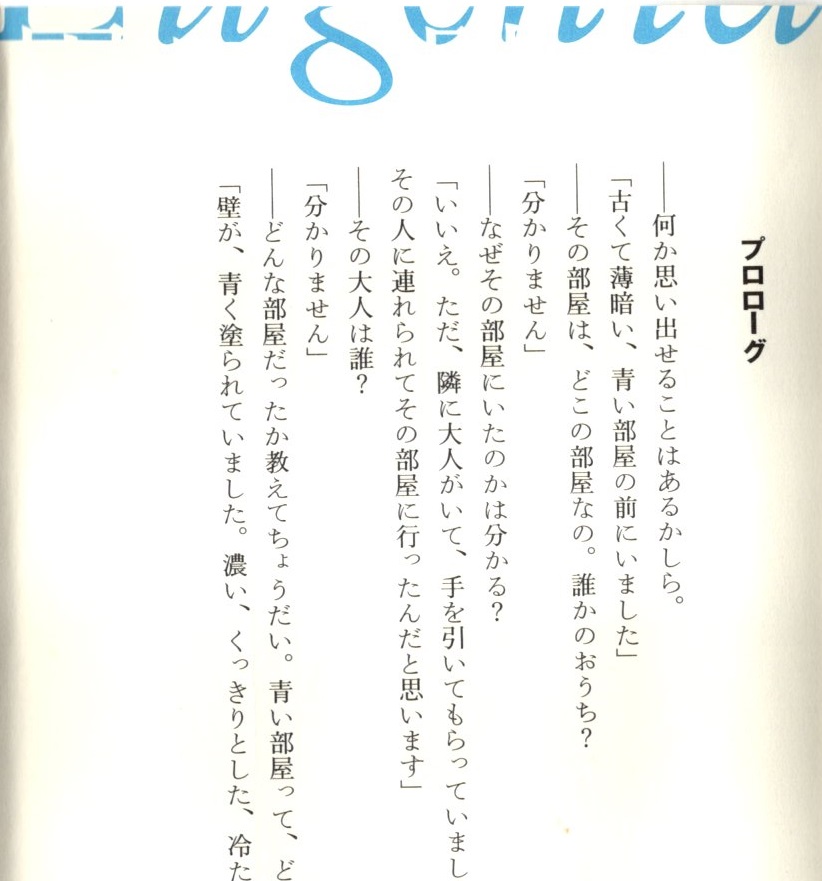 プロローグ
――何か思い出せることはあるかしら。
「古くて薄暗い、青い部屋の前にいました」
――その部屋は、どこの部屋なの。誰かのおうち？
「分かりません」
――なぜその部屋にいたのかは分かる？
「いいえ。ただ、隣に大人がいて、手を引いてもらっていまし
その人に連れられてその部屋に行ったんだと思います」
――その大人は誰？
「分かりません」
――どんな部屋だったか教えてちょうだい。青い部屋って、ど
「壁が、青く塗られていました。濃い、くっきりとした、冷た